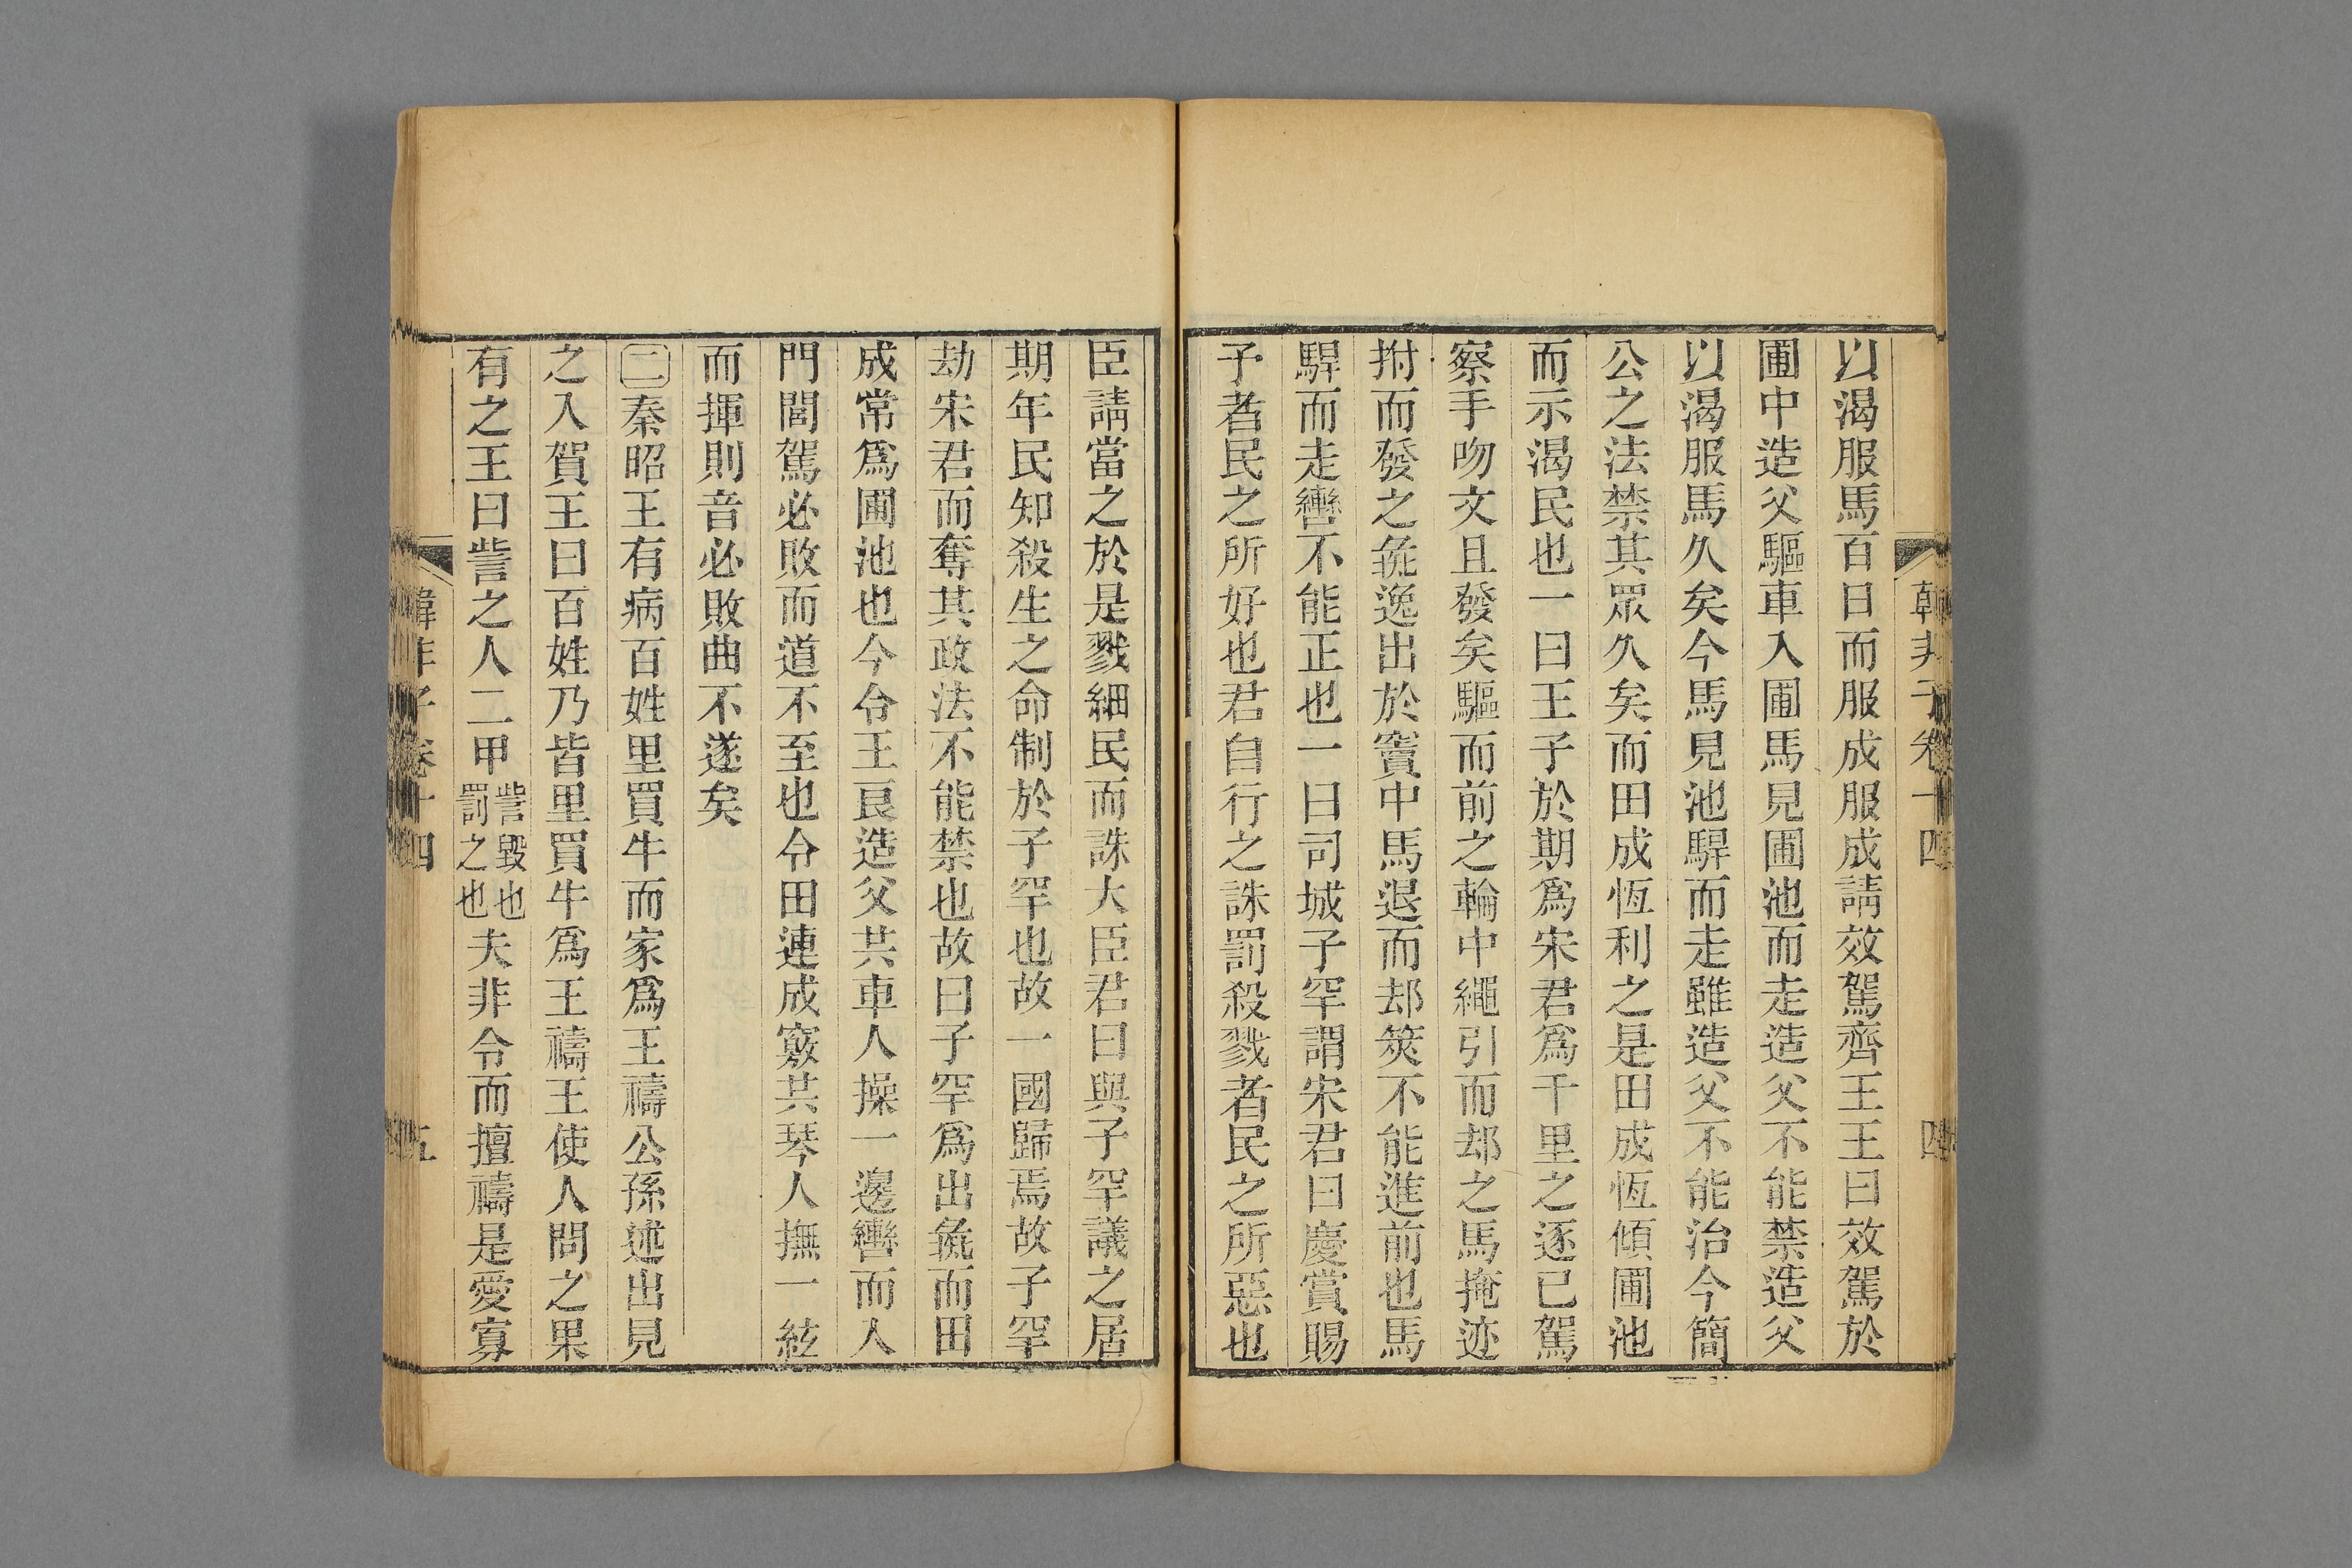 韓非子卷十四 四
以渴服馬百日而服成服成請效駕齊王王曰效駕於
圃中造父驅車入圃馬見圃池而走造父不能禁造父
以渴服馬久矣今馬見池駻而走雖造父不能治今簡
公之法禁其眾久矣而田成恆利之是田成恆傾圃池
而示渴民也一曰王子於期為宋君為千里之逐已駕
察手吻文且發矣驅而前之輪中繩引而却之馬掩迹
拊而發之彘逸出於竇中馬退而却筴不能進前也馬
駻而走轡不能正也一曰司城子罕謂宋君曰慶賞賜
予者民之所好也君自行之誅罰殺戮者民之所惡也
臣請當之於是戮細民而誅大臣君曰與子罕議之居
期年民知殺生之命制於子罕也故一國歸焉故子罕
劫宋君而奪其政法不能禁也故曰子罕為出彘而田
成常為圃池也今令王良造父共車人操一邊轡而入
門閭駕必敗而道不至也令田連成竅共琴人撫一絃
而揮則音必敗曲不遂矣
二秦昭王有病百姓里買牛而家為王禱公孫述出見
之入賀王曰百姓乃皆里買牛為王禱王使人問之果
有之王曰訾之人二甲訾毀也罰之也夫非令而擅禱是愛寡
韓非子卷十四 五